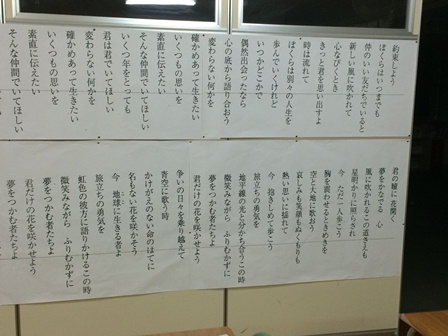 約束しよう
ぼくらはいつまでも
仲のいい友だちでいると
新しい風に吹かれて
心なびくとき
きっと君を思い出すよ
時は流れて
ぼくらは別々の人生を
歩んでいくけれど
いつかどこかで
偶然出会ったなら
心の底から語り合おう
変わらない何かを
確かめあって生きたい
いくつもの思いを
素直に伝えたい
いくつ年をとっても
そんな仲間でいてほしい
君は君でいてほしい
変わらない何かを
確かめあって生きたい
いくつもの思いを
素直に伝えたい
そんな仲間でいてほしい
君の瞳に花開く
夢をかなでる 心
風に吹かれるこの道さえも
星明かりに照らされ
今 ただ一人歩こう
胸を震わせるときめきを
空と大地に歌おう
哀しみも笑顔もぬくもりも
熱い思いに揺れて
今 抱きしめて歩こう
旅立ちの勇気を
地平線の光と分かち合うこの時
微笑みながら ふりむかずに
夢をつかむ者たちよ
君だけの花を咲かせよう
争いの日々を乗り越えて
青空に歌う時
かけがえのない命のはてに
名もない花を咲かそう
今 地球に生きる者よ
旅立ちの勇気を
虹色の彼方に語りかけるこの時
微笑みながら ふりむかずに
夢をつかむ者たちよ
君だけの花を咲かせよう
夢をつかむ者たちよ